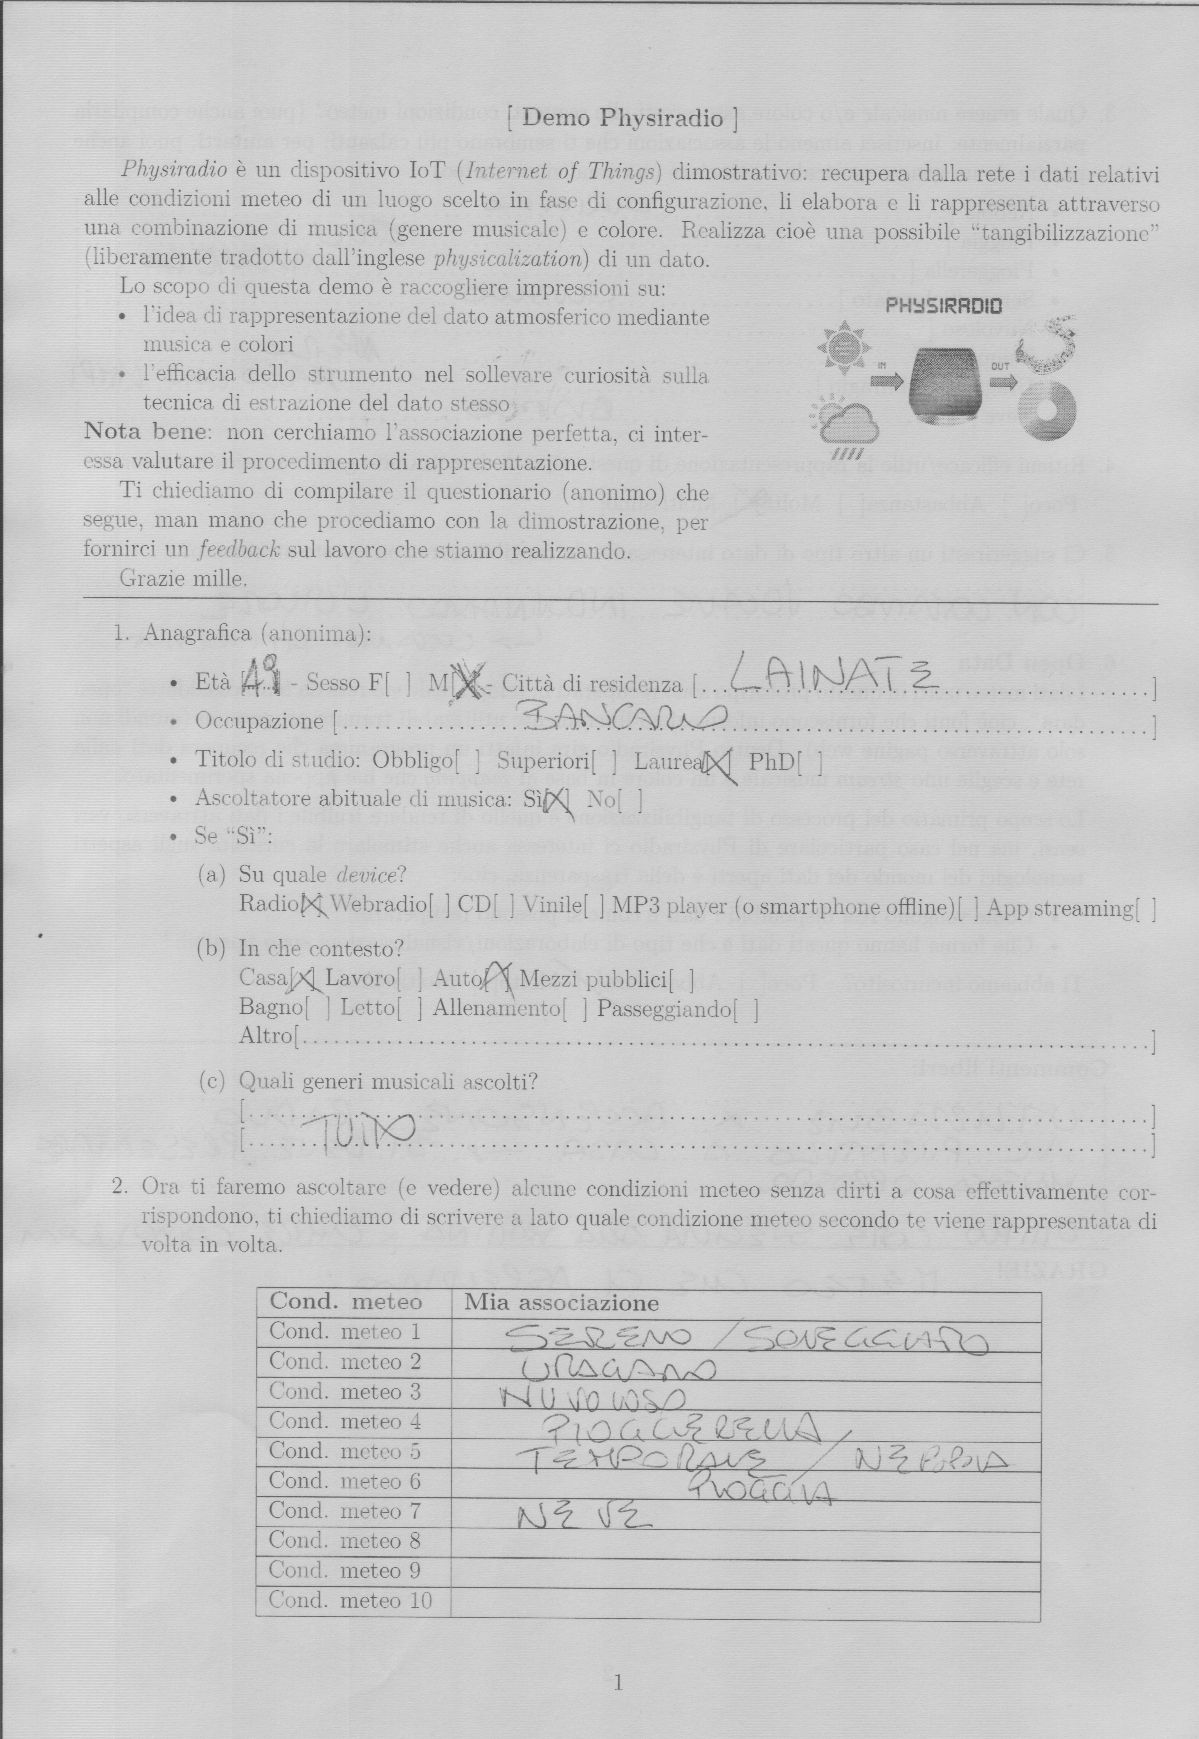 [ Demo Physiradio ]
Physiradio è un dispositivo IoT (Internet of Things) dimostrativo: recupera dalla rete i dati relativi
alle condizioni meteo di un luogo scelto in fase di configurazione, li elabora e li rappresenta attraverso
una combinazione di musica (genere musicale) e colore. Realizza cioè una possibile “tangibilizzazione”
(liberamente tradotto dall'inglese physicalization) di un dato.
Lo scopo di questa demo è raccogliere impressioni su:
• l'idea di rappresentazione del dato atmosferico mediante
musica e colori
• l'efficacia dello strumento nel sollevare curiosità sulla
tecnica di estrazione del dato stesso
PHYSIRADIO
IN
OUT
Nota bene: non cerchiamo l'associazione perfetta, ci inter-
essa valutare il procedimento di rappresentazione.
Ti chiediamo di compilare il questionario (anonimo) che
segue, man mano che procediamo con la dimostrazione, per
fornirci un feedback sul lavoro che stiamo realizzando.
Grazie mille.
1. Anagrafica (anonima):
• Età [49] - Sesso F[ ] M[X] - Città di residenza [...LAINATE...]
• Occupazione [...BANCARIO...]
• Titolo di studio: Obbligo[ ] Superiori[ ] Laurea[X] PhD[ ]
• Ascoltatore abituale di musica: Sì[X] No[ ]
• Se “Sì”:
(a) Su quale device?
Radio[X] Webradio[ ] CD[ ] Vinile[ ] MP3 player (o smartphone offline)[ ] App streaming[ ]
(b) In che contesto?
Casa[X] Lavoro[ ] Auto[X] Mezzi pubblici[ ]
Bagno[ ] Letto[ ] Allenamento[ ] Passeggiando[ ]
Altro[...]
(c) Quali generi musicali ascolti?
[...]
[...TUTTO...]
2. Ora ti faremo ascoltare (e vedere) alcune condizioni meteo senza dirti a cosa effettivamente cor-
rispondono, ti chiediamo di scrivere a lato quale condizione meteo secondo te viene rappresentata di
volta in volta.
Cond. meteo Mia associazione
Cond. meteo 1 SERENO / SOLEGGIATO
Cond. meteo 2 URAGANO
Cond. meteo 3 NUVOLOSO
Cond. meteo 4 PIOGGERELLA
Cond. meteo 5 TEMPORALE / NEBBIA
Cond. meteo 6 PIOGGIA
Cond. meteo 7 NEVE
Cond. meteo 8
Cond. meteo 9
Cond. meteo 10
1